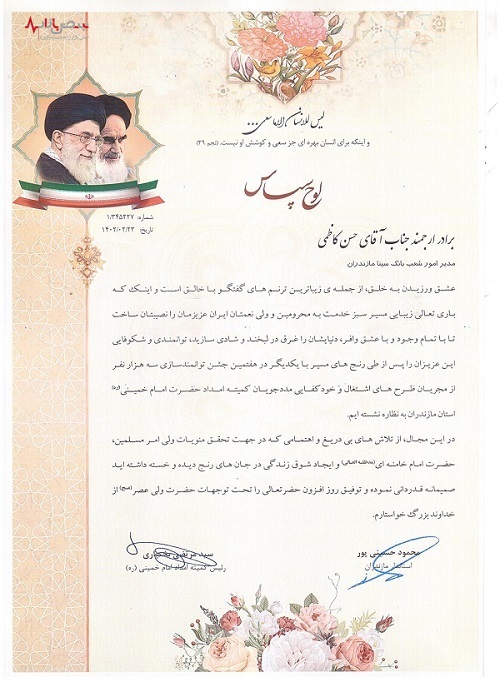 نبض بازار
لیس للانسان الا ما سعی...
و اینکه برای انسان بهره ای جز سعی و کوشش او نیست. (نجم ۳۹)
لوح سپاس
شماره: ۱/۳۴۵۲۲۷
تاریخ: ۱۴۰۲/۰۲/۲۳
برادر ارجمند جناب آقای حسن کاظمی
مدیر امور شعب بانک سینا مازندران
عشق ورزیدن به خلق، از جمله‌ی زیباترین ترنم های گفتگو با خالق است و اینک که
باری تعالی زیبایی مسیر سبز خدمت به محرومین و ولی نعمتان ایران عزیزمان را نصیبتان ساخت
تا با تمام وجود و با عشق وافر، دنیایشان را غرق در لبخند و شادی سازید، توانمندی و شکوفایی
این عزیزان را پس از طی رنج های مسیر با یکدیگر در هفتمین جشن توانمندسازی سه هزار نفر
از مجریان طرح های اشتغال و خودکفایی مددجویان کمیته امداد حضرت امام خمینی (ره)
استان مازندران به نظاره نشسته ایم.
در این مجال، از تلاش های بی دریغ و اهتمامی که در جهت تحقق منویات ولی امر مسلمین،
حضرت امام خامنه ای (مدظله العالی) و ایجاد شوق زندگی در جان های رنج دیده و خسته داشته اید
صمیمانه قدردانی نموده و توفیق روز افزون حضرتعالی را تحت توجهات حضرت ولی عصر (عج) از
خداوند بزرگ خواستارم.
محمود حسینی پور
استاندار مازندران
سید مرتضی بختیاری
رئیس کمیته امداد امام خمینی (ره)